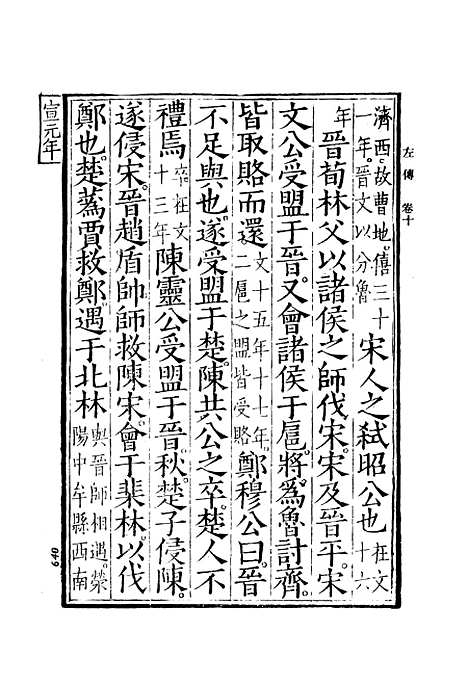 左傳 卷十
濟西故曹地僖三十
一年晉文以分魯
宋人之弒昭公也
在文
十六
年
晉荀林父以諸侯之師伐宋宋及晉平宋
文公受盟于晉又會諸侯于扈將為魯討齊
皆取賂而還
文十五年十七年
二扈之盟皆受賂
鄭穆公曰晉
不足與也遂受盟于楚陳共公之卒楚人不
禮焉
卒在文
十三年
陳靈公受盟于晉秋楚子侵陳
遂侵宋晉趙盾帥師救陳宋會于棐林以伐
鄭也楚蒍賈救鄭遇于北林
與晉師相遇滎
陽中牟縣西南
宣元年
640